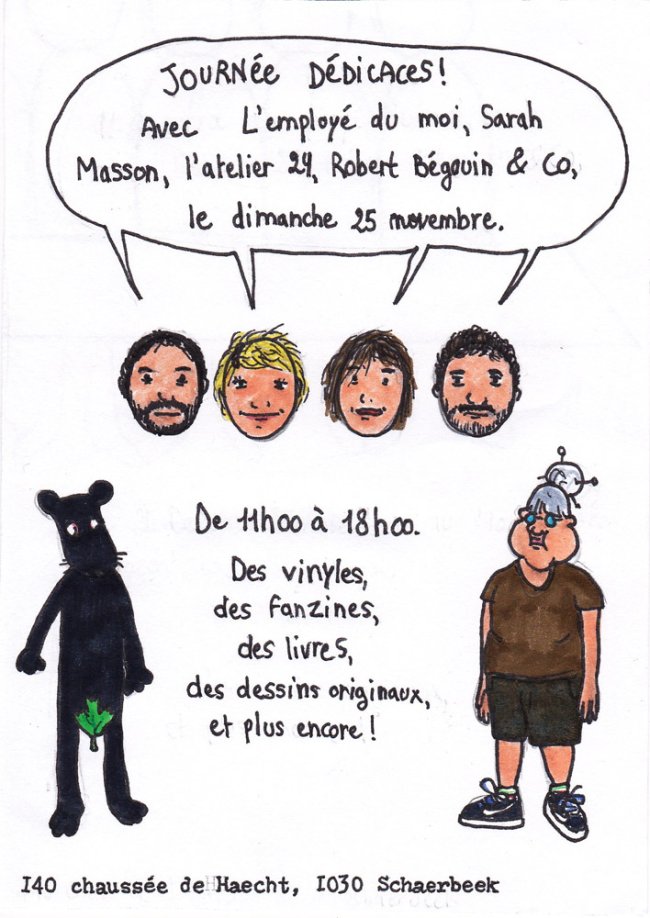 JOURNÉE DÉDICACES!
Avec L'employé du moi, Sarah
Masson, l'atelier 24, Robert Bégouin & Co,
le dimanche 25 novembre.
De 11h00 à 18h00.
Des vinyles,
des fanzines,
des livres,
des dessins originaux,
et plus encore!
140 chaussée de Haecht, 1030 Schaerbeek